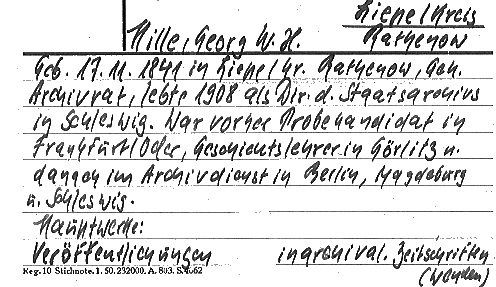 Liepe/Kreis
Hille, Georg W. H. Rathenow
Geb. 17.11.1841 in Liepe/Kr. Rathenow, Geh.
Archivrat, lebte 1908 als Dir. d. Staatsarchivs
in Schleswig. War vorher Probekandidat in
Frankfurt/Oder, Geschichtslehrer in Görlitz u.
danach im Archivdienst in Berlin, Magdeburg
u. Schleswig.
Hauptwerke:
Veröffentlichungen in archival. Zeitschriften
(Wenden)
Reg. 10 Stichnote. 1. 50. 232000. A. 803. S. 4062